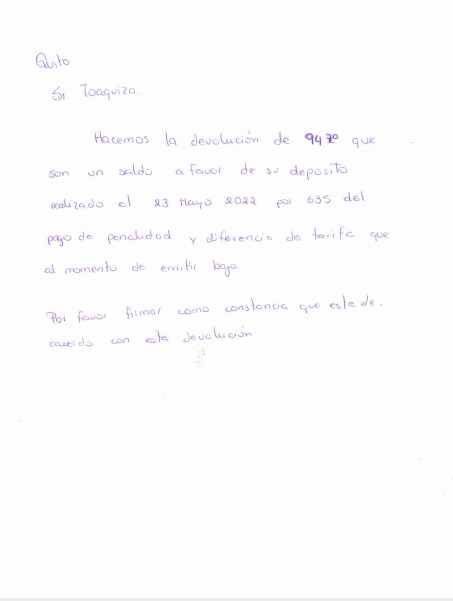 Quito
Sr Toaquiza.
Hacemos la devolución de 94⁷⁰ que
son un saldo a favor de su deposito
realizado el 23 Mayo 2022 por 635 del
pago de penalidad y diferencia de tarifa que
al momento de emitir bajo.
Por favor firmar como constancia que este de.
acuerdo con esta devolución